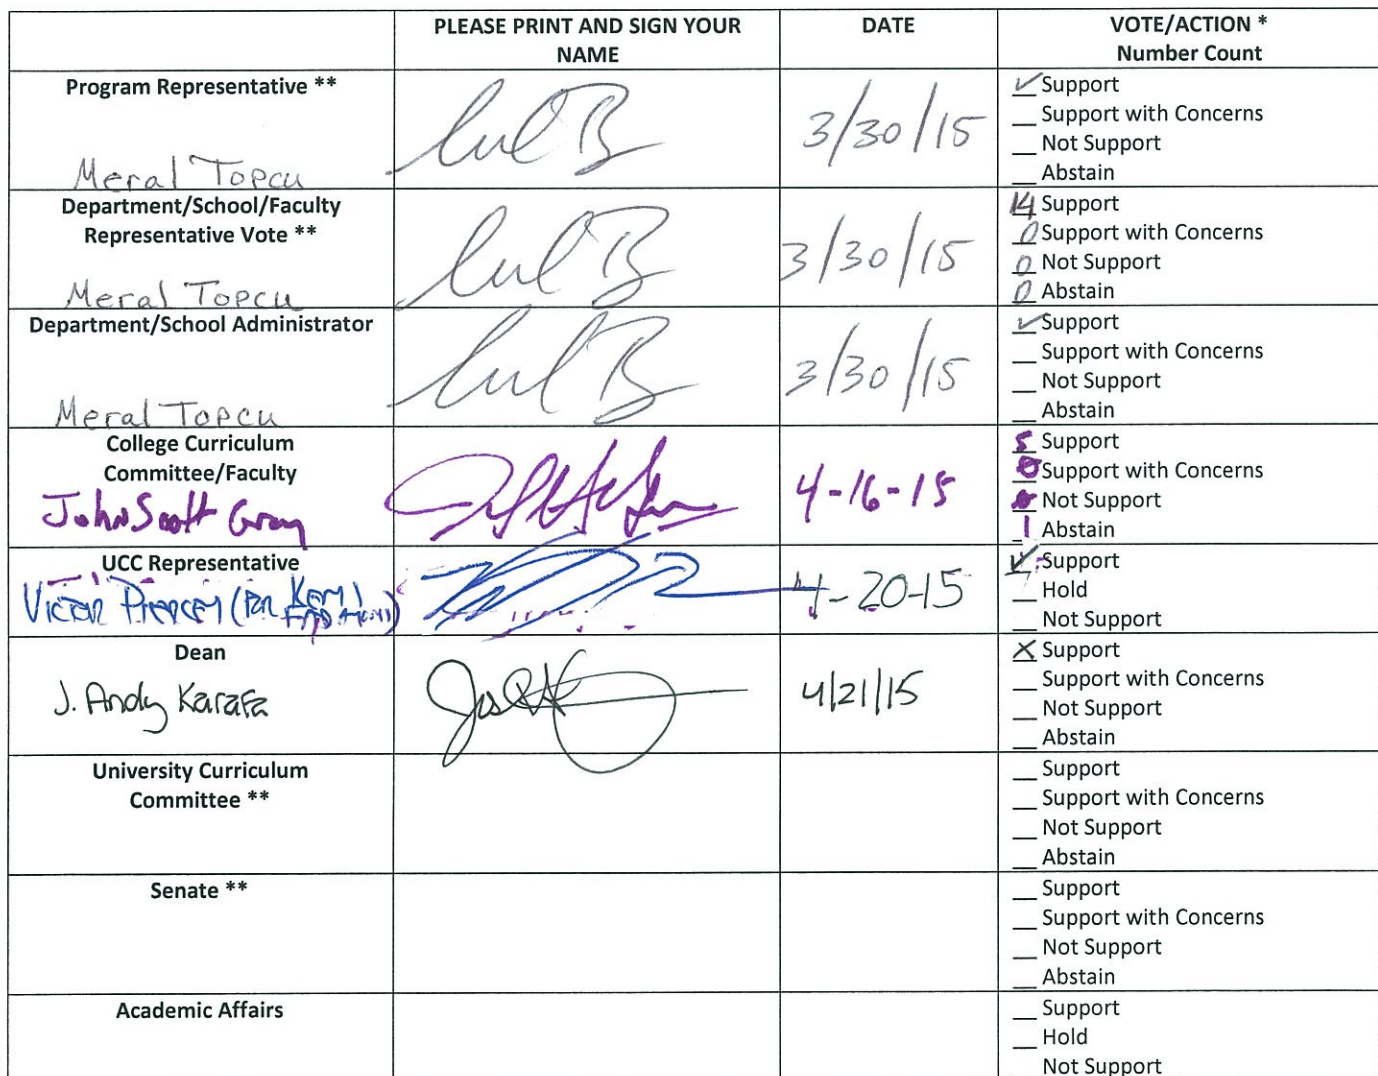 PLEASE PRINT AND SIGN YOUR NAME
DATE
VOTE/ACTION *
Number Count
Program Representative **
Meral Topcu
3/30/15
✓ Support
__ Support with Concerns
__ Not Support
__ Abstain
Department/School/Faculty
Representative Vote **
Meral Topcu
3/30/15
14 Support
0 Support with Concerns
0 Not Support
0 Abstain
Department/School Administrator
Meral Topcu
3/30/15
✓ Support
__ Support with Concerns
__ Not Support
__ Abstain
College Curriculum
Committee/Faculty
John Scott Gray
4-16-15
5 Support
0 Support with Concerns
0 Not Support
1 Abstain
UCC Representative
Victor Piercey (for
4-20-15
✓ Support
__ Hold
__ Not Support
Dean
J. Andy Karafa
4/21/15
X Support
__ Support with Concerns
__ Not Support
__ Abstain
University Curriculum
Committee **
__ Support
__ Support with Concerns
__ Not Support
__ Abstain
Senate **
__ Support
__ Support with Concerns
__ Not Support
__ Abstain
Academic Affairs
__ Support
__ Hold
Not Support